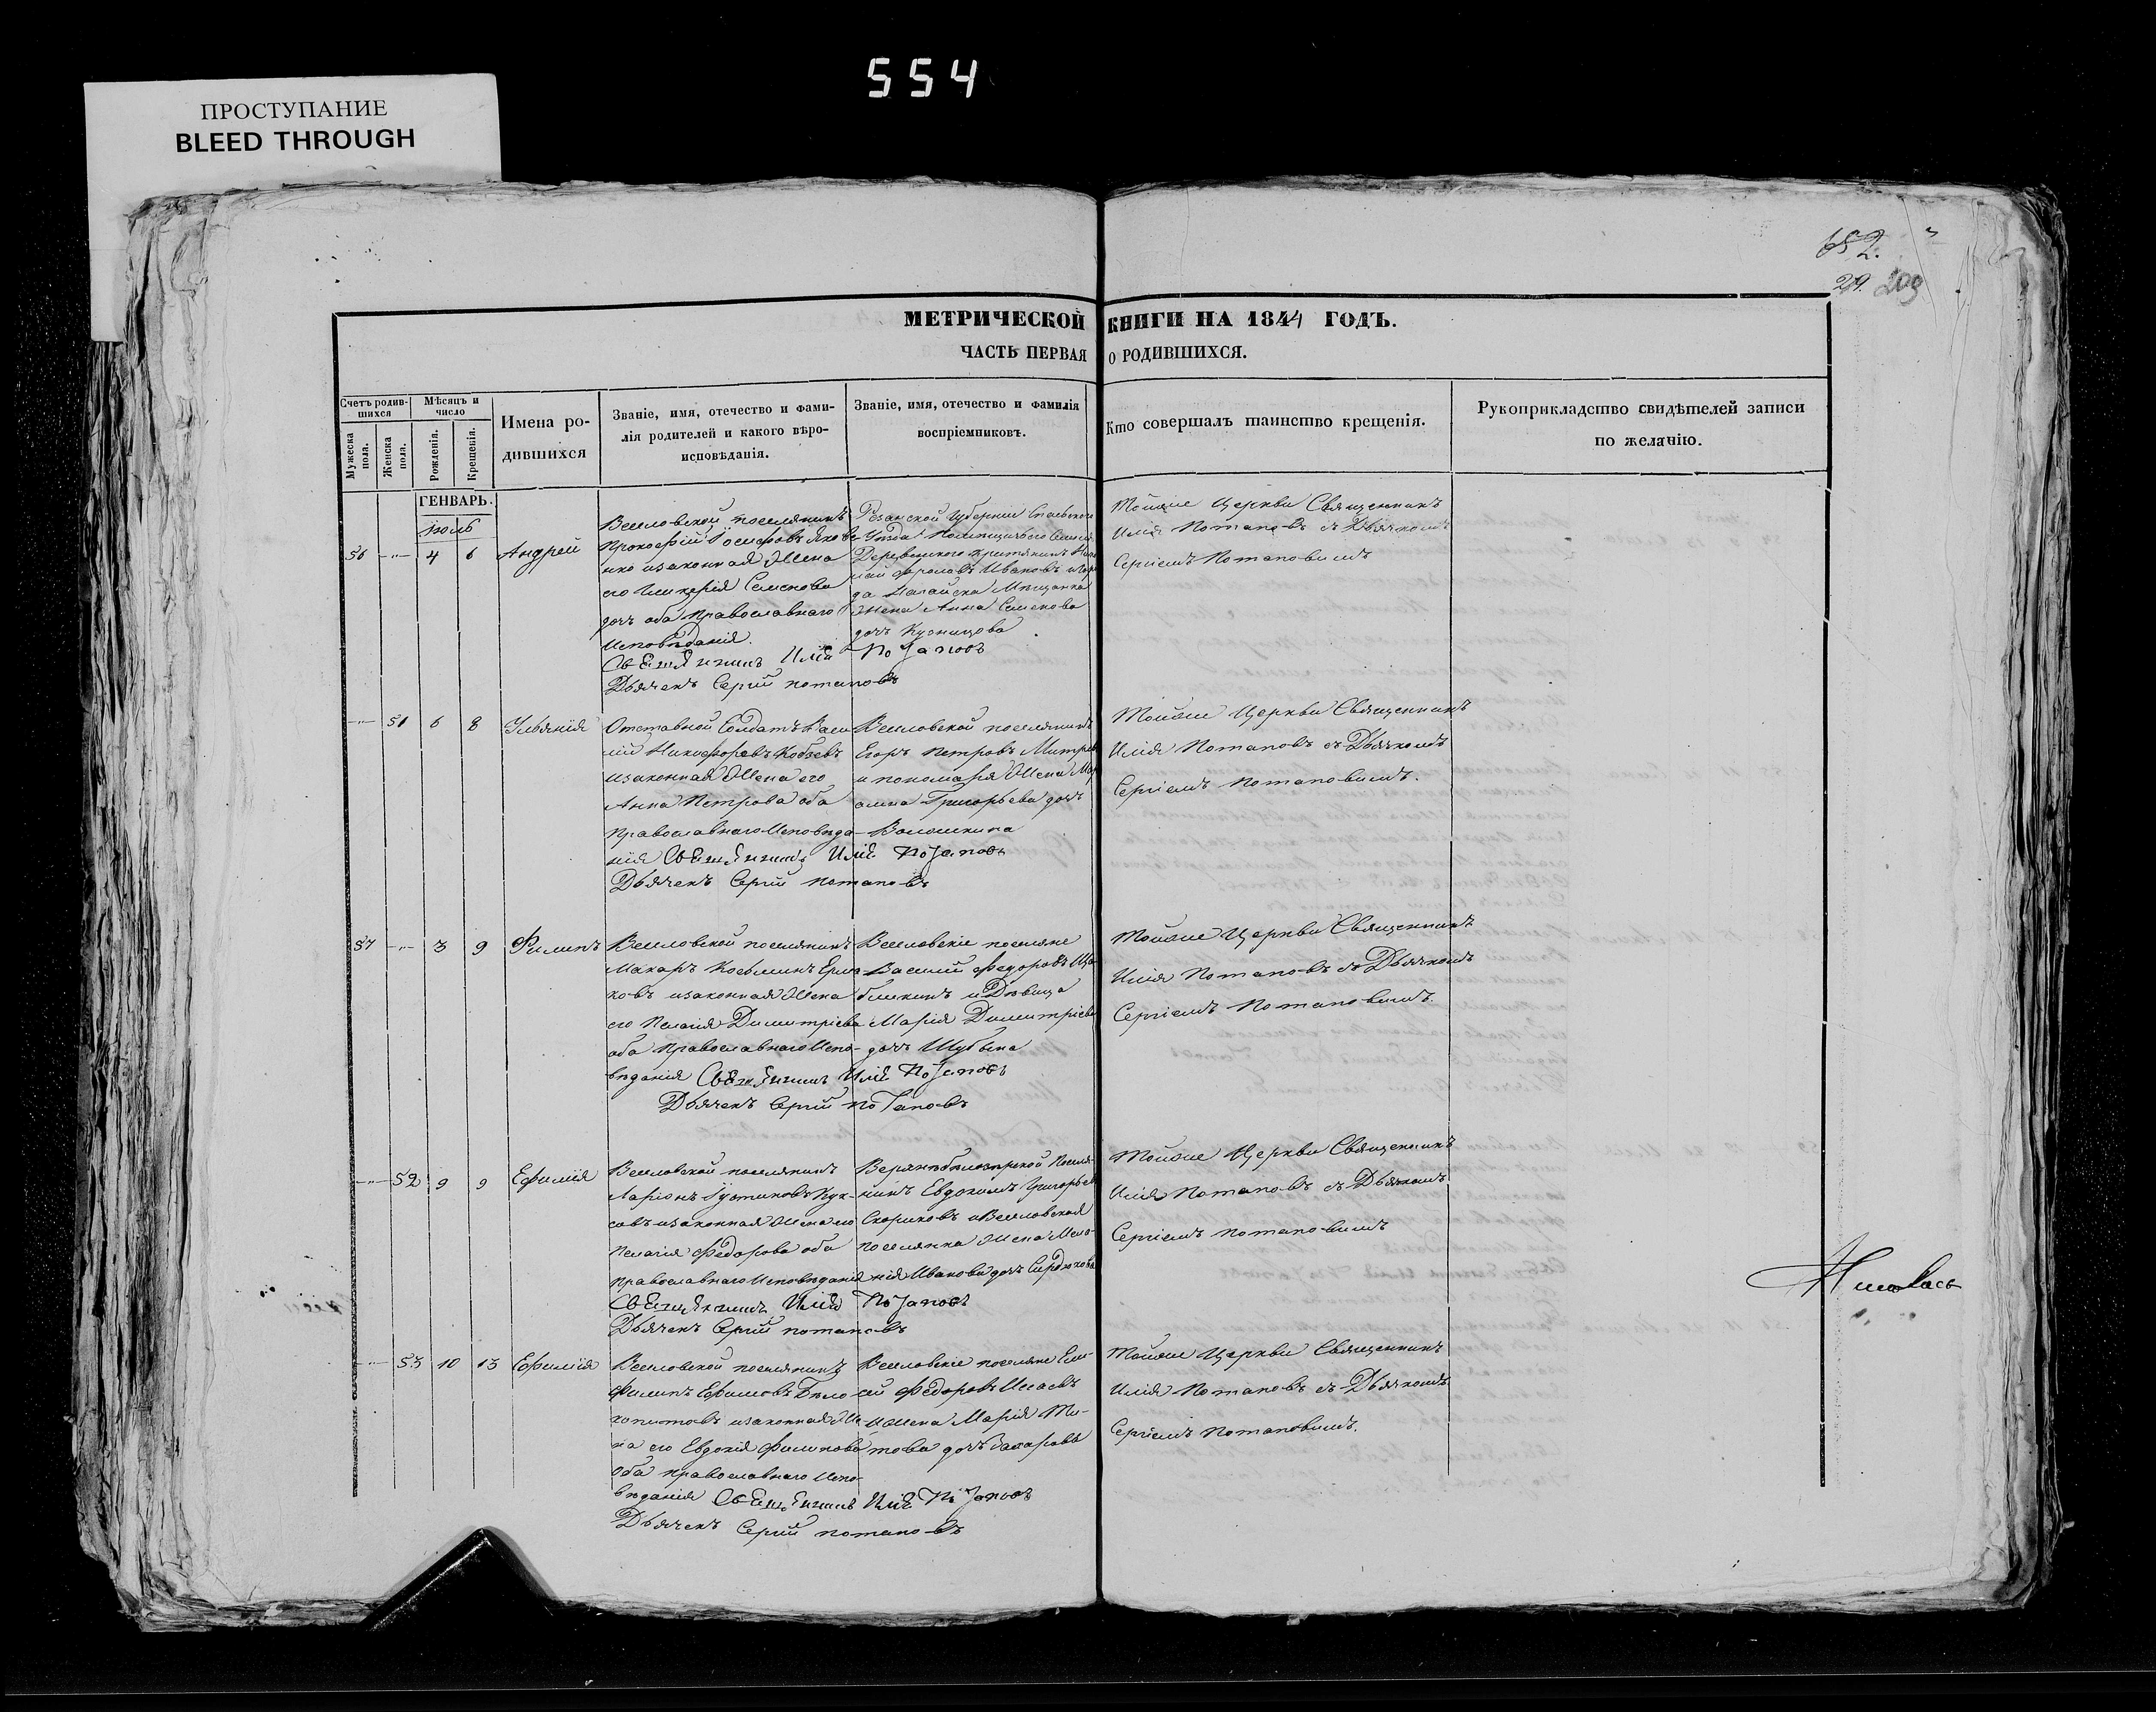 554
ПРОСТУПАНИЕ
BLEED THROUGH
652.
29. 209
МЕТРИЧЕСКОЙ КНИГИ НА 1844 ГОДЪ.
ЧАСТЬ ПЕРВАЯ О РОДИВШИХСЯ.
Счетъ родившихся
Мужеска пола.
Женска пола.
Мѣсяцъ и число
Рожденія.
Крещенія.
Имена родившихся
Званіе, имя, отечество и фамилія родителей и какого вѣроисповѣданія.
Званіе, имя, отечество и фамилія воспріемниковъ.
Кто совершалъ таинство крещенія.
Рукоприкладство свидѣтелей записи по желанію.
ГЕНВАРЬ.
Іюль
56 -"- 4 6 Андрей
Веселовской поселянинъ
Прокофій Іосифовъ
изаконная Жена
его Гликерія Семенова
дочь оба Православнаго
Исповѣданія.
Резанской Губерніи
Уѣзда
Фроловъ Ивановъ
Ногайска Мѣщанка
Жена Анна Семенова
дочь Кузницова
Священникъ Илія Потаповъ
Дьячекъ Сергій Потаповъ
Тойже Церкви Священникъ
Илія Потаповъ съ Дьячкомъ
Сергіемъ Потаповымъ
-"- 51 6 8 Ульянія
Отставной Солдатъ Васи
лій Никифоровъ Кобзевъ
изаконная Жена его
Анна Петрова оба
Православнаго Исповѣда-
нія
Веселовской поселянинъ
Егоръ Петровъ
и пономаря Жена
Григорьева дочь
Волошкина
Священникъ Илія Потаповъ
Дьячекъ Сергій Потаповъ
Тойже Церкви Священникъ
Илія Потаповъ съ Дьячкомъ
Сергіемъ Потаповымъ.
57 -"- 3 9 Филипъ
Веселовской поселянинъ
Макаръ Косьминъ
ковъ изаконная Жена
его Пелагія Димитріева
оба Православнаго Испо-
вѣданія
Веселовскіе поселяне
Василій Федоровъ
и Дѣвица
Марія Димитріева
дочь Шубина
Священникъ Илія Потаповъ
Дьячекъ Сергій Потаповъ
Тойже Церкви Священникъ
Илія Потаповъ съ Дьячкомъ
Сергіемъ Потаповымъ.
-"- 52 9 9 Ефимія
Веселовской поселянинъ
Ларіонъ Іустиновъ Кук-
совъ изаконная Жена его
Пелагія Федорова оба
Православнаго Исповѣданія
поселя-
нинъ Евдокимъ Григорьевъ
Скориковъ и Веселовская
поселянка Жена Мела-
нія Иванова дочь Сердюкова
Священникъ Илія Потаповъ
Дьячекъ Сергій Потаповъ
Тойже Церкви Священникъ
Илія Потаповъ съ Дьячкомъ
Сергіемъ Потаповымъ
-"- 53 10 13 Ефимія
Веселовской поселянинъ
Филипъ Ефимовъ Бѣло
копытовъ изаконная Же
на его Евдокія Филипова
оба Православнаго Испо-
вѣданія
Веселовскіе поселяне Ели-
сей Федоровъ Исаевъ
и Жена Марія Ти-
това дочь Захарова
Священникъ Илія Потаповъ
Дьячекъ Сергій Потаповъ
Тойже Церкви Священникъ
Илія Потаповъ съ Дьячкомъ
Сергіемъ Потаповымъ.